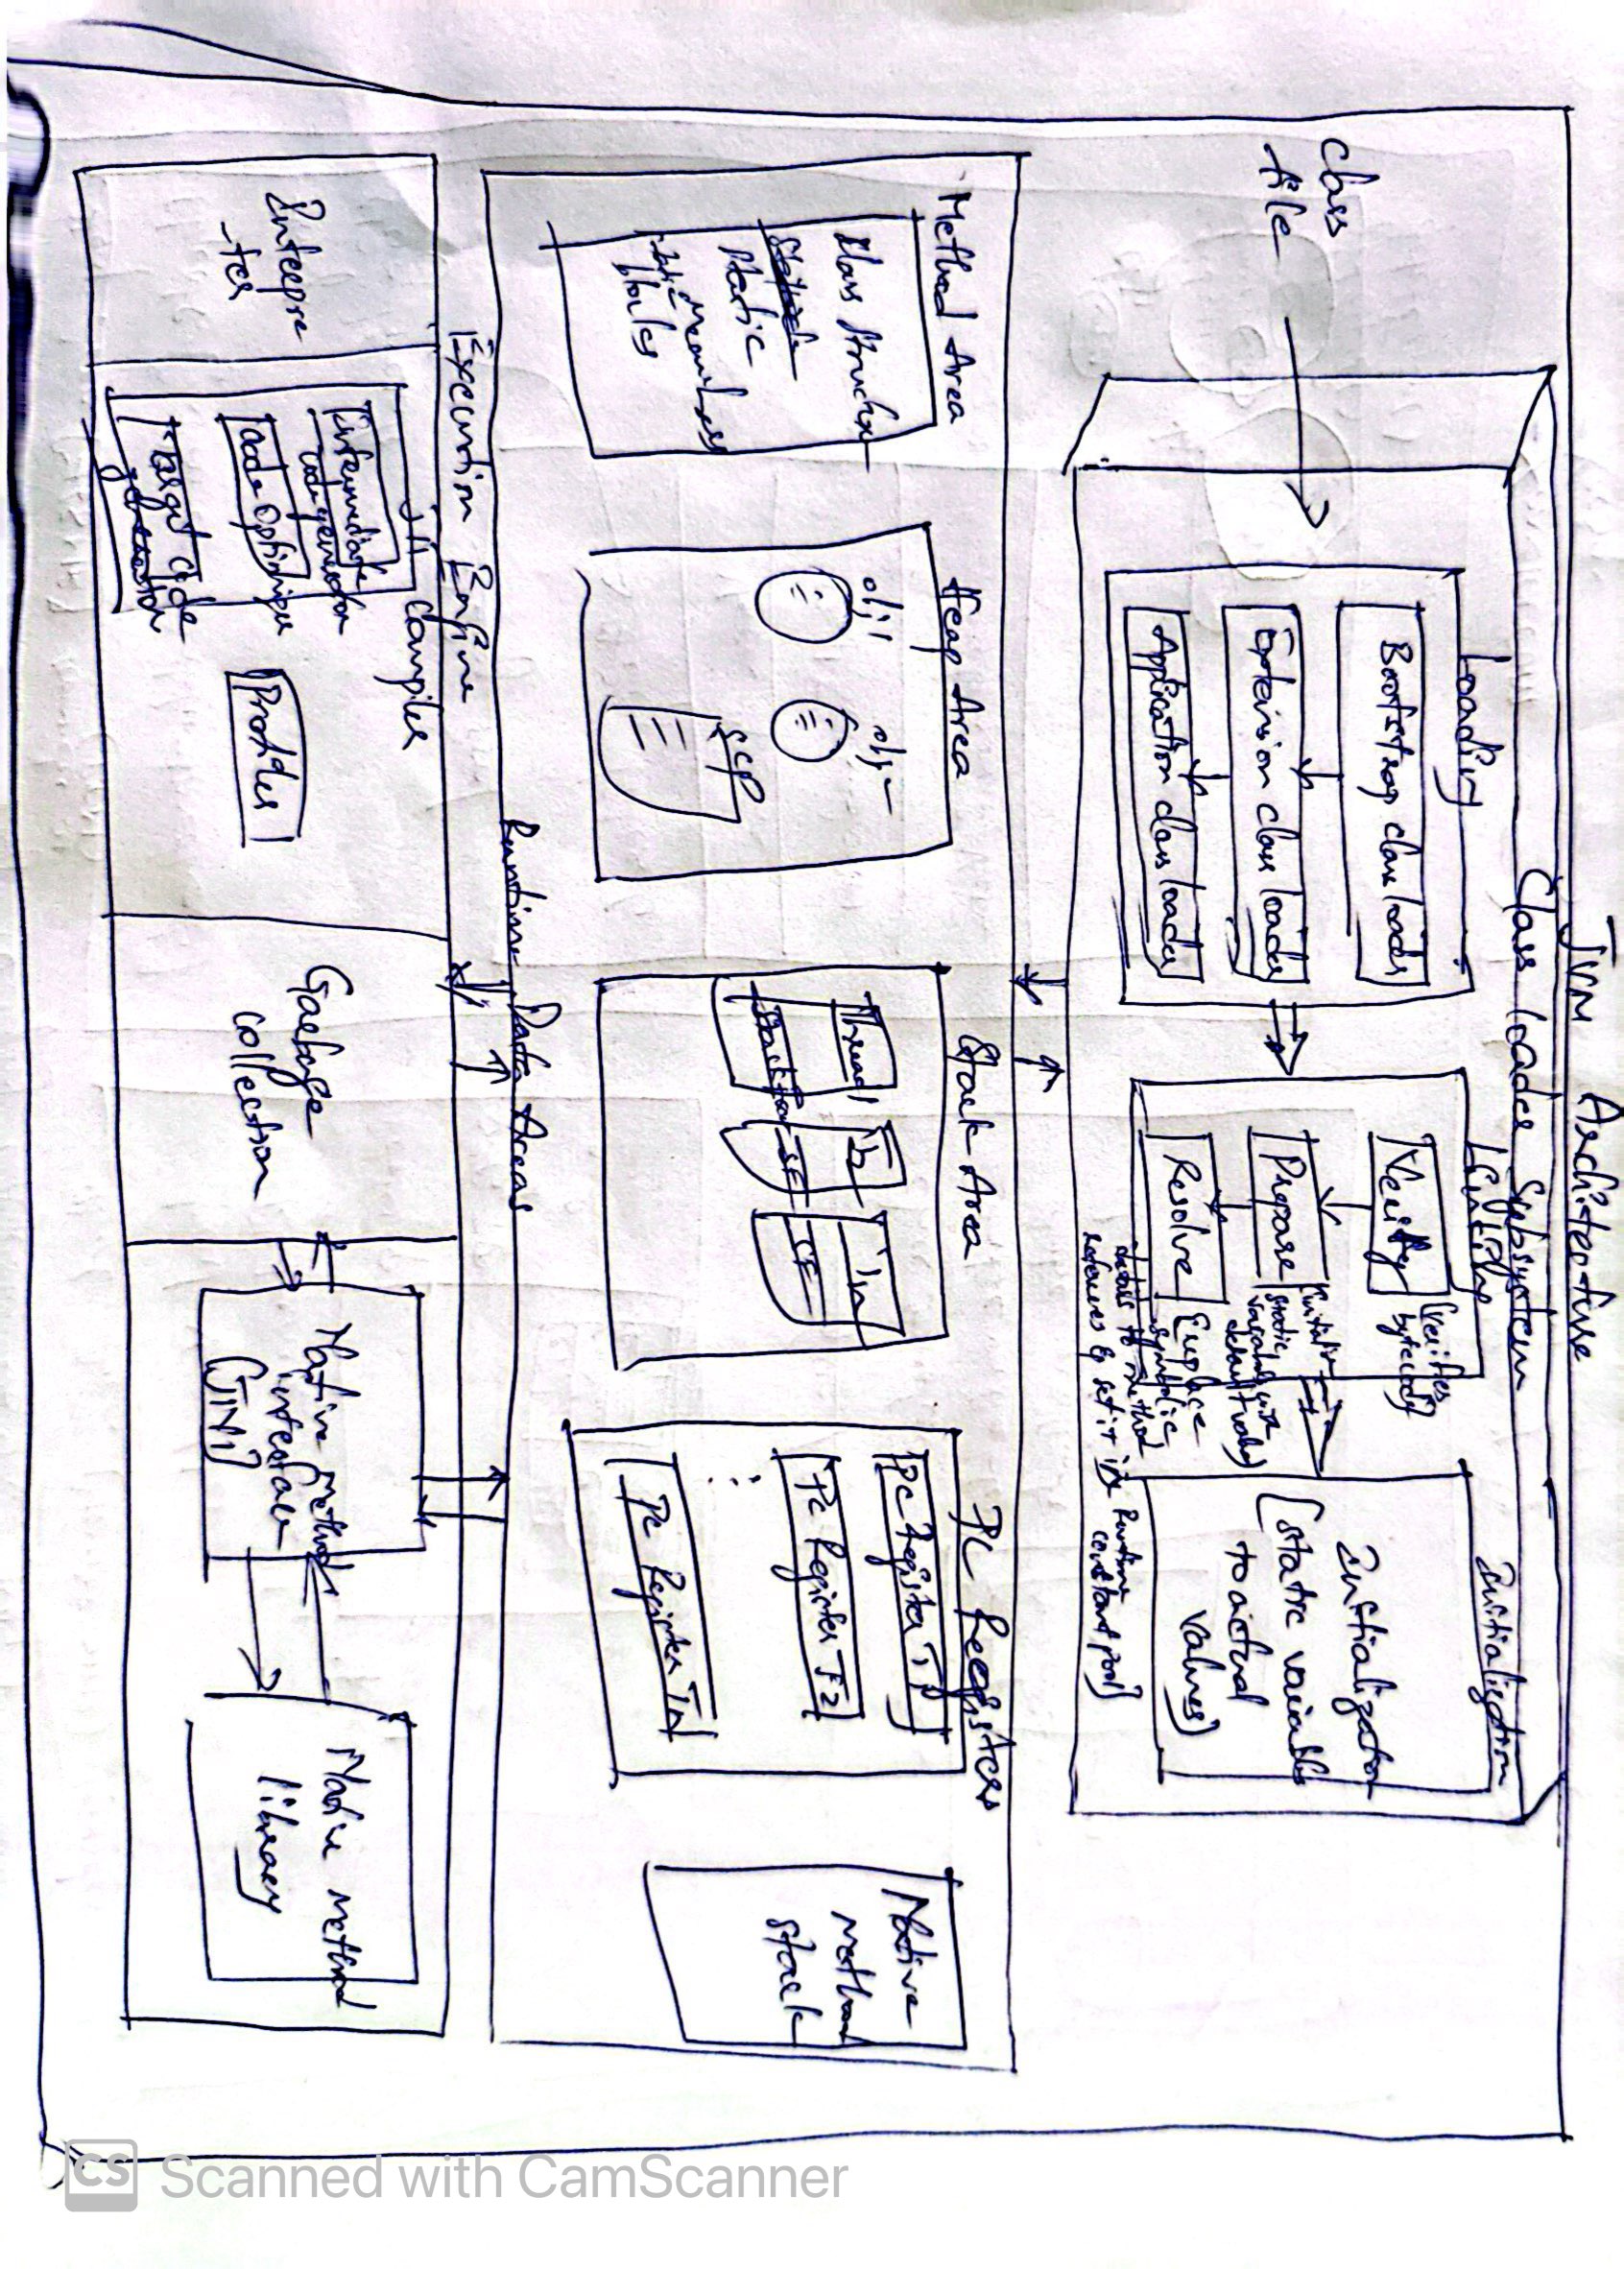 JVM Architecture
Class loader Subsystem
Class
file
Loading
Bootstrap class loader
Extension class loader
Application class loader
Linking
Verify
(verifies
bytecode)
Prepare
static
variables with
default value)
Resolve
(replace
symbolic
references &
runtime
constant pool)
Initialization
Initialization
(static variables
to actual
values)
Method Area
Class structure
Static
blocks
Heap Area
obj1
SCP
Stack Area
Thread1
T2
Tn
SF
SF
PC Registers
PC Register T1
PC Register T2
:
PC Register Tn
Native
method
stack
Runtime Data Areas
Execution Engine
Interpre
-ter
JIT Compiler
Intermediate
code generator
Code Optimizer
Target code
generator
Profiler
Garbage
collection
Native method
interface
(JNI)
Native method
library
CS Scanned with CamScanner